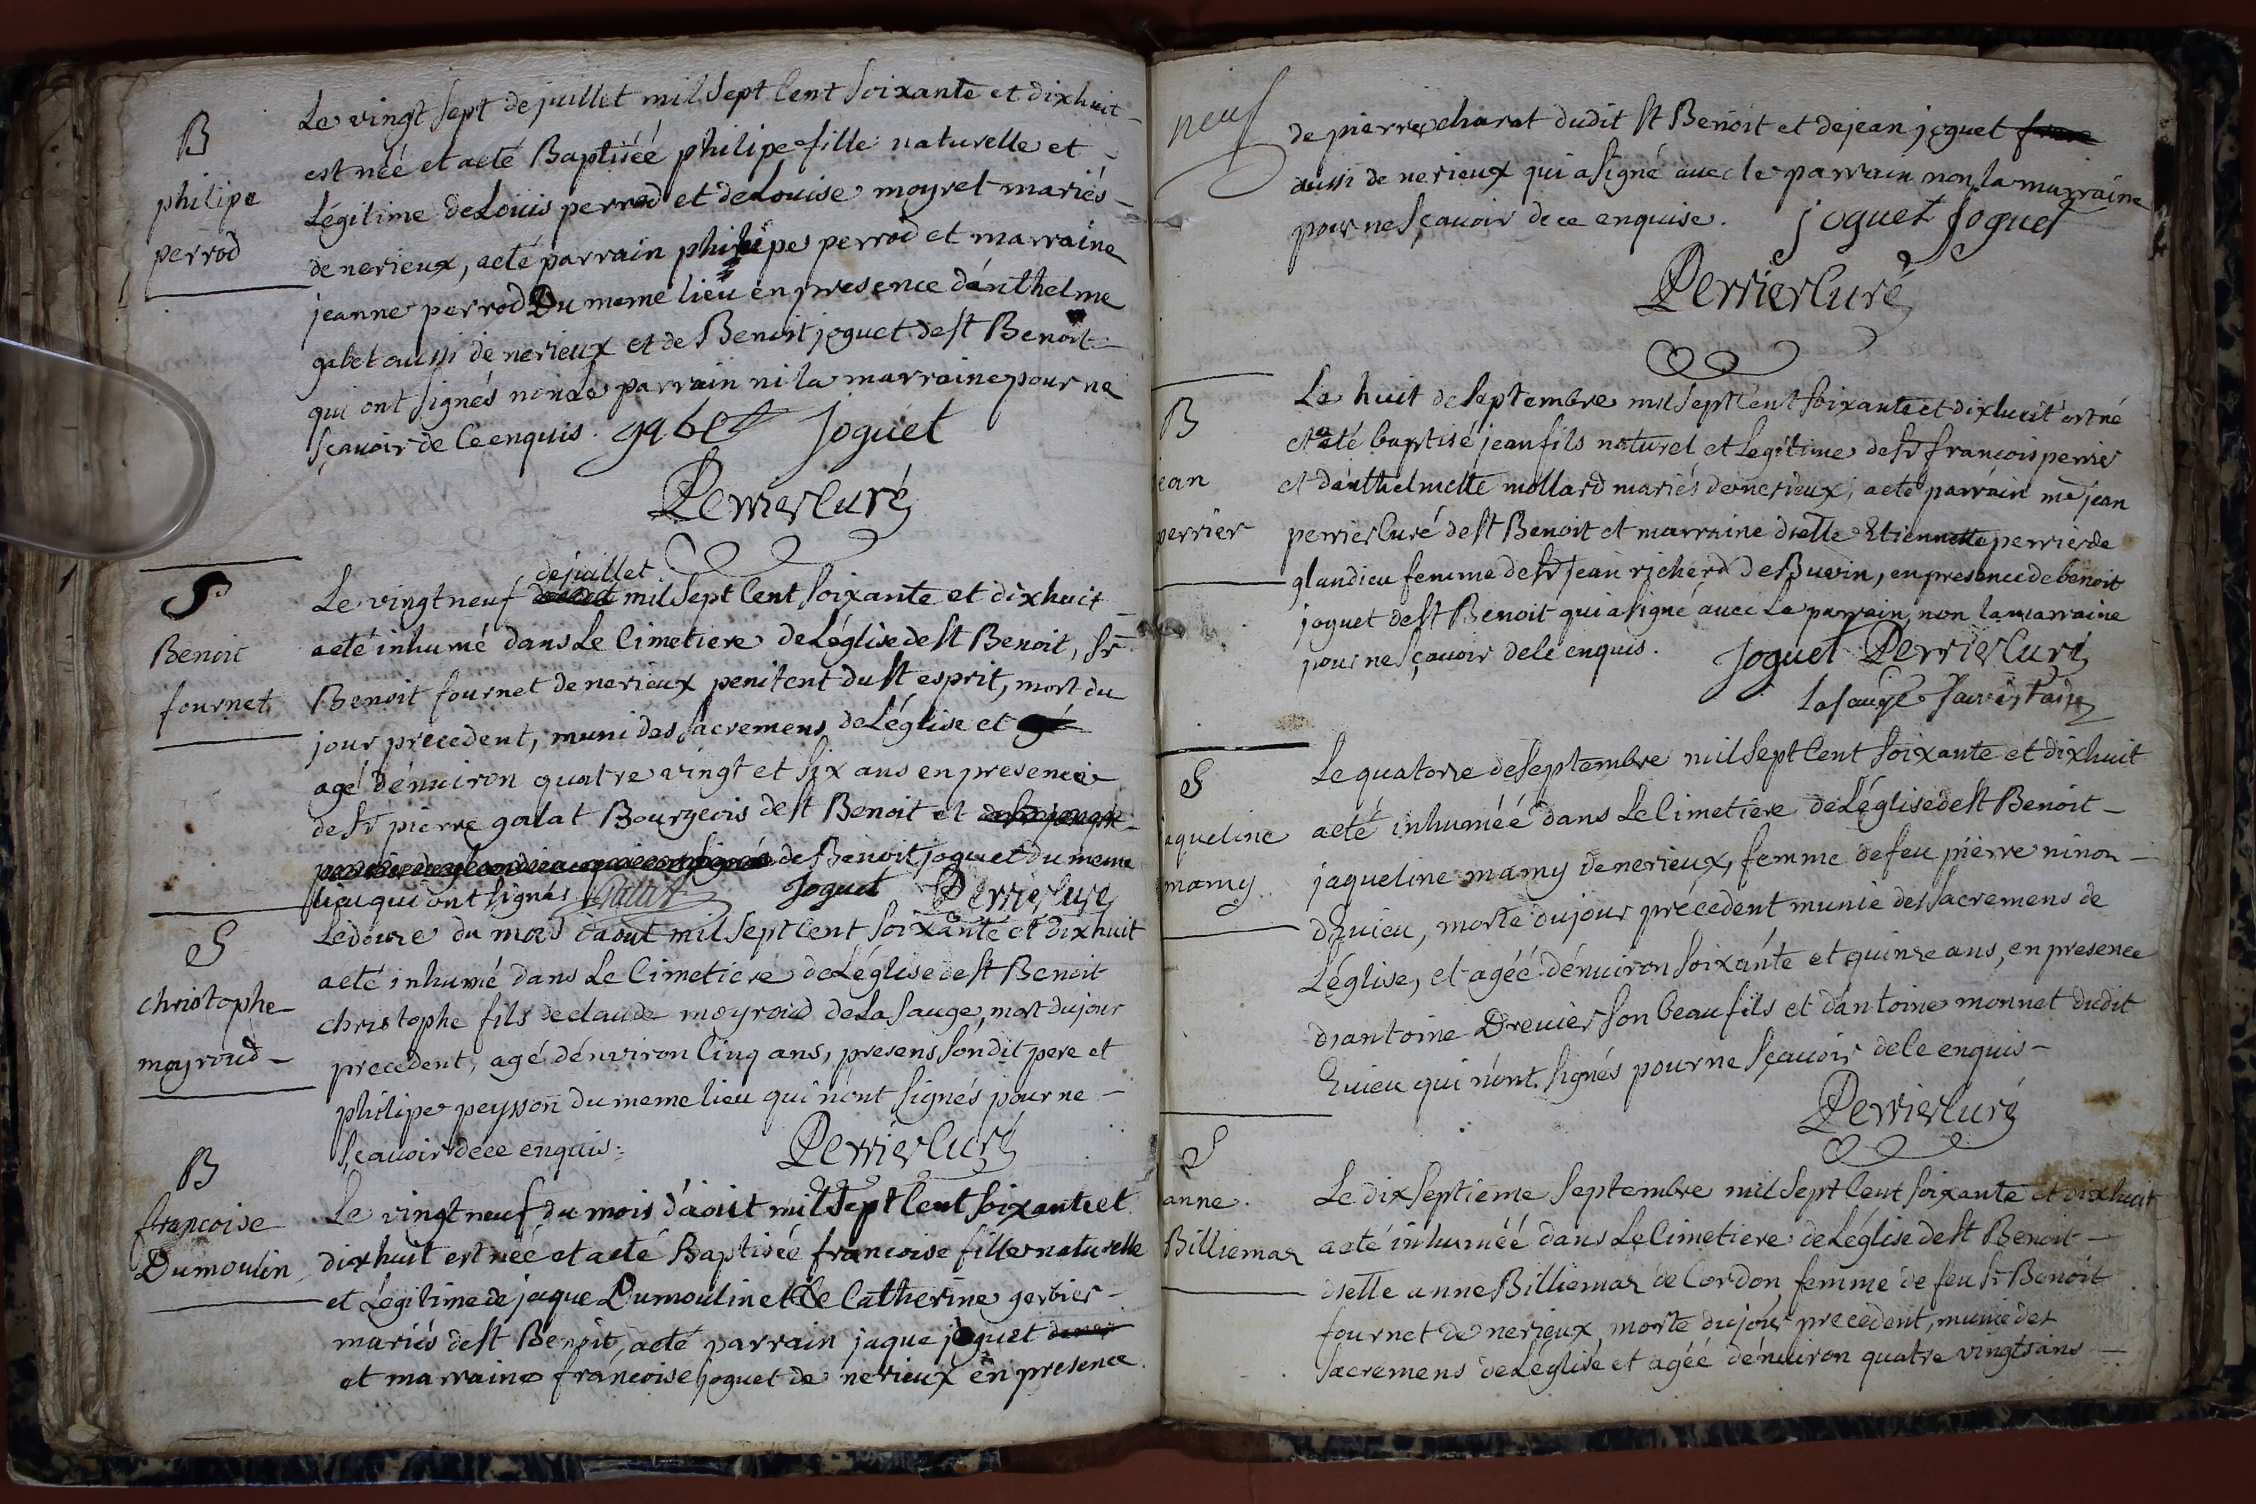 B
philipe
perrod
Le vingt sept de juillet mil sept Cent soixante et dixhuit
est néé et aeté Baptiséé philipe fille naturelle et
Légitime de Louis perrod et de Louise moyret mariés
de nerieux, aeté parrain philipe perrod et marraine
jeanne perrod Du meme lieu en presence d'anthelme
gabet aussi de nerieux et de Benoit joguet de st Benoit
qui ont signés non le parrain ni la marraine pour ne
sçavoir de Ce enquis. gabet Joguet
Perrier Curé
S
Benoit
fournet
de juillet
Le vingt neuf mil sept Cent soixante et dixhuit
aeté inhumé dans Le Cimetiere de Léglise de st Benoit, sr
Benoit fournet de nerieux penitent du st esprit, mort du
jour precedent, muni des sacremens de Léglise et
agé dénuiron quatre vingt et six ans en presence
de sr pierre galat Bourgeois de st Benoit et
de Benoit joguet du meme
lieu qui ont signés Galat Joguet Perrier Curé
S
christophe
moyroud
Le douze du mois d'aout mil sept Cent soixante et dixhuit
aeté inhumé dans Le Cimetiere de Léglise de st Benoit
christophe fils de claude moyroud de La sauge, mort du jour
precedent, agé dénviron Cinq ans, presens son dit pere et
philipe peysson du meme lieu qui n'ont signés pour ne
sçavoir de ce enquis.
Perrier Curé
B
francoise
Dumoulin
Le vingt neuf du mois d'aoit mil sept Cent soixante et
dixhuit est néé et aeté Baptiséé francoise fille naturelle
et Légitime de jaque Dumoulin et de Catherine gerbier
mariés de st Benoit, aeté parrain jaque joguet
et marraine francoise joguet de nerieux en presence
neuf
de pierre charat dudit st Benoit et de jean joguet
aussi de nerieux qui a signé avec le parrain non la marraine
pour ne sçavoir de ce enquise. joguet Joguet
Perrier Curé
B
jean
perrier
Le huit de septembre mil sept Cent soixante et dixhuit est né
et a eté baptisé jean fils naturel et Legitime de sr francois perrier
et d'anthelmette mollard mariés de nerieux, aeté parrain me jean
perrier Curé de st Benoit et marraine dlelle Etiennette perrier de
glandieu femme de sr Jean richerd De Buvin, en presence de benoit
joguet de st Benoit qui a signé avec Le parrain, non la marraine
pour ne sçavoir de Ce enquis. Joguet Perrier Curé
Lasauge
S
jaqueline
mamy
Le quatorze de septembre mil sept Cent soixante et dixhuit
aeté inhuméé dans Le Cimetiere de Léglise de st Benoit
jaqueline mamy de nerieux, femme de feu pierre ninon
d'Euieu, morte du jour précédent munie des sacremens de
Léglise, et agéé dénuiron soixante et quinze ans, en presence
d'antoine Drevier son beau fils et d'antoine monnet dudit
Euieu qui n'ont signés pour ne sçavoir de Ce enquis
Perrier Curé
S
anne
Billiemaz
Le dix septieme septembre mil sept Cent soixante et dixhuit
aeté inhuméé dans Le Cimetiere de Léglise de st Benoit
dlelle anne Billiemaz de Cordon femme de feu sr Benoit
fournet de nerieux, morte du jour precedent, munie des
sacremens de Léglise et agéé dénuiron quatre vingts ans